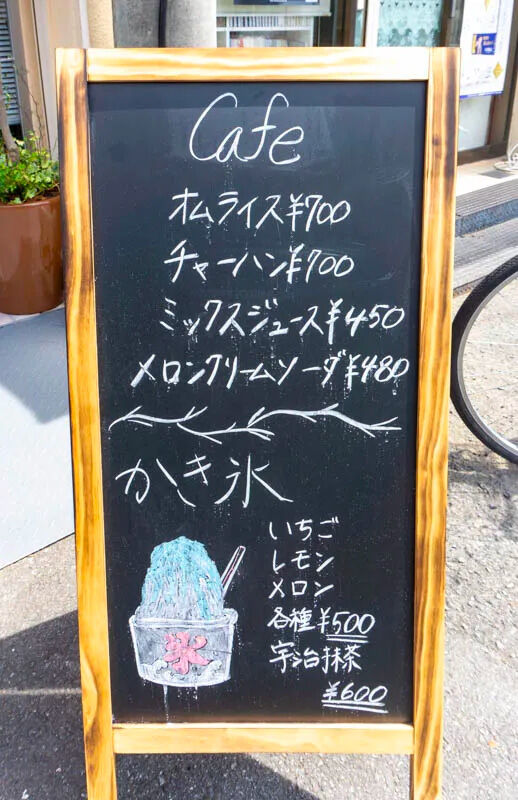 Cafe
オムライス¥700
チャーハン¥700
ミックスジュース¥450
メロンクリームソーダ¥480
かき氷
いちご
レモン
メロン
各種¥500
宇治抹茶
¥600
氷